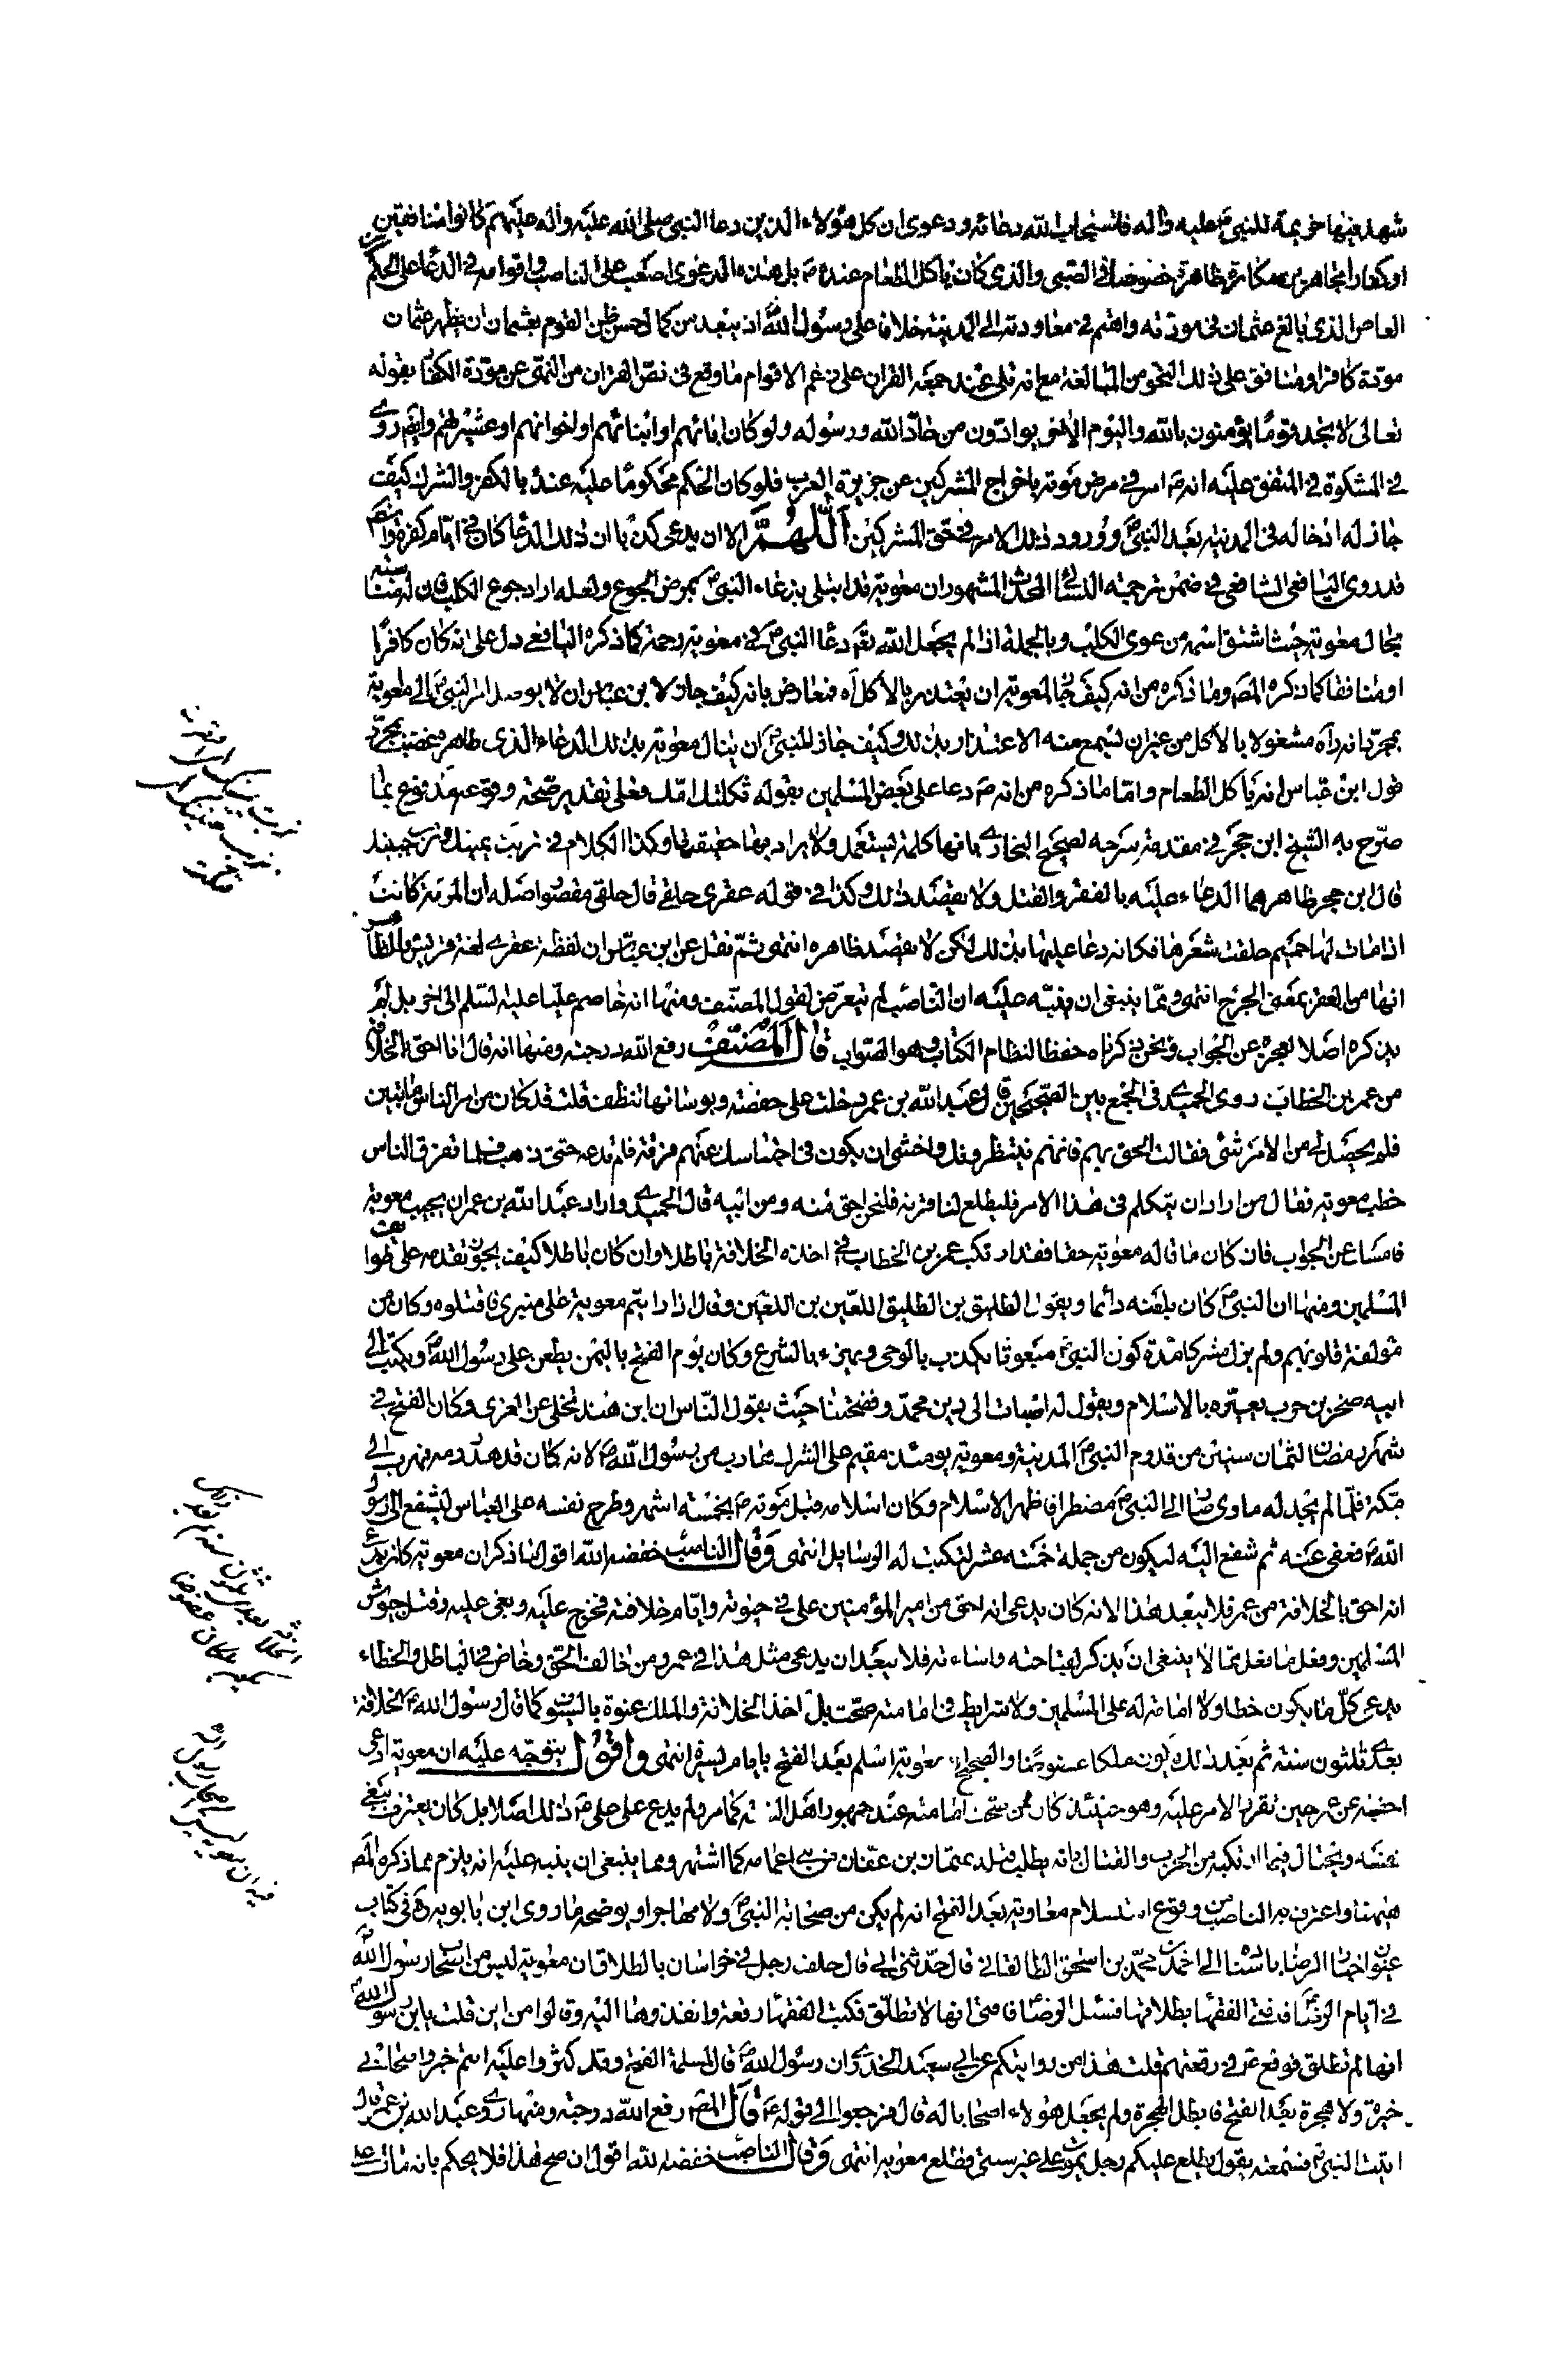 شهد فيها خزيمة للنبي ص عليه واله فاستجاب الله دعائه ودعوى ان كل هؤلاء الذين دعا النبي صلى الله عليه واله عليهم كانوا منافقين
او كفارا مجاهرين مكابرة ظاهرة خصوصا في الصبى والذي كان ياكل الطعام عنده ص بل هذه الدعوى اصعب على الناصب واقوامه في الدعا على الحكم بن
العاص الذي بالغ عثمان في مودته واهتم في معاودته الى المدينة خلافا على رسول الله اذ يبعد من كمال حسن ظن القوم بعثمان ان يظهر عثمان
مودة كافر او منافق على ذلك النحو من المبالغة مع انه تلى عند جمعه القران على زعم الاقوام ما وقع في نص القران من النهى عن مودة الكفار بقوله
تعالى لا تجد قوما يؤمنون بالله واليوم الاخر يوادون من حاد الله ورسوله ولو كان ابائهم او ابنائهم او اخوانهم او عشيرتهم وايضا روى
في المشكوة في المتفق عليه انه ص امر في مرض موته باخراج المشركين عن جزيرة العرب فلو كان الحكم محكوما عليه عنده بالكفر والشرك كيف
جاز له ادخاله في المدينة بعد النبي ص وورود ذلك الامر في حق المشركين اللهم الا ان يدعى كذبا ان ذلك الدعا كان في ايام كفره وايضا
قد روى اليافعى الشافعى في ضمن ترجمة النسائى المحدث المشهور ان معوية قد ابتلى بدعاء النبي ص بمرض الجوع ولعله اراد جوع الكلب فان له مناسبة
بحال معوية حيث اشتق اسمه من عوى الكلب وبالجملة اذا لم يجعل الله تع دعا النبي ص في معوية رحمة كما ذكره اليافعى دل على انه كان كافرا
او منافقا كما ذكره المص وما ذكره من انه كيف جاز لمعوية ان يعتذر بالاكل اه فمعارض بانه كيف جاز لابن عباس ان لا يوصل امر النبي ص الى معوية
بمجرد انه راه مشغولا بالاكل من غير ان يسمع منه الاعتذار بذلك وكيف جاز للنبي ص ان ينال معوية بذلك الدعاء الذي ظاهره غضب بمجرد
قول ابن عباس انه ياكل الطعام واما ما ذكره من انه ص دعا على بعض المسلمين بقوله ثكلتك امك فعلى تقدير صحته ووقوعه مدفوع بما
صرح به الشيخ ابن حجر في مقدمة شرحه لصحيح البخارى بانها كلمة تستعمل ولا يراد بها حقيقتها وكذا الكلام في تربت يمينك وترب جبينه
قال ابن حجر ظاهرهما الدعاء عليه بالفقر والقتل ولا يقصد ذلك وكذا في قوله عقرى حلقى قال حلقى مقصور اصله ان المرئة كانت
اذا مات لها حميم حلقت شعرها فكانه دعا عليها بذلك لكن لا يقصد ظاهره انتهى ثم نقل عن ابن عباس ان لفظة عقرى لغة قريش والظاهر
انها من العقر بمعنى الجرح انتهى ومما ينبغى ان ينبه عليه ان الناصب لم يتعرض لقول المصنف ومنها انه خاصم عليا عليه السلم الى اخره بل لم
يذكره اصلا لعجزه عن الجواب ونحن ذكرناه حفظا لنظام الكتاب وهو الصواب قال المصنف رفع الله درجته ومنها انه قال انا احق بالخلافة
من عمر بن الخطاب روى الحميدى في الجمع بين الصحيحين قال عبد الله بن عمر دخلت على حفصة ونوساتها تنطف قلت قد كان من امر الناس ما ترين
فلم يحصل لى من الامر شئى فقالت الحق بهم فانهم ينتظرونك واخشى ان يكون في احتباسك عنهم فرقة فلم تدعه حتى ذهب فلما تفرق الناس
خطب معوية فقال من اراد ان يتكلم في هذا الامر فليطلع لنا قرنه فلنحن احق منه ومن ابيه قال الحميدى واراد عبد الله بن عمر ان يجيب معوية
فامسك عن الجواب فان كان ما قاله معوية حقا فقد ارتكب عمر بن الخطاب في اخذه الخلافة باطلا وان كان باطلا كيف يجوز تقدمه على طوائف
المسلمين ومنها ان النبي ص كان يلعنه دائما ويقول الطليق بن الطليق اللعين بن اللعين وقال اذا رايتم معوية على منبرى فاقتلوه وكان من
مؤلفة قلوبهم ولم يزل مشركا مدة كون النبي ص مبعوثا يكذب بالوحى ويهزء بالشرع وكان يوم الفتح باليمن يطعن على رسول الله ص ويكتب الى
ابيه صخر بن حرب يعيره بالاسلام ويقول له اصبات الى دين محمد وفضحتنا حيث يقول الناس ان ابن هند تخلى عن العزى وكان الفتح في
شهر رمضان لثمان سنين من قدوم النبي ص المدينة ومعوية يومئذ مقيم على الشرك هارب من رسول الله ص لانه كان قد هدر دمه فهرب الى
مكة فلما لم يجد له ماوى صار الى النبي ص مضطرا فاظهر الاسلام وكان اسلامه قبل موته ص بخمسة اشهر وطرح نفسه على العباس ليشفع الى رسول
الله ص فعفى عنه ثم شفع اليه ليكون من جملة خمسة عشر لتكتب له الوسايل انتهى وقال الناصب خفضه الله اقول ما ذكر ان معوية كان يدعى
انه احق بالخلافة من عمر فلا يبعد هذا لانه كان يدعى انه احق من امير المؤمنين على في حيوته وايام خلافته فخرج عليه وبغى عليه وقتل جيوش
المسلمين وفعل ما فعل مما لا ينبغى ان يذكر لقباحته واساءته فلا يبعد ان يدعى مثل هذا في عمر ومن خالف الحق وخاض في الباطل والخطاء
يدعى كل ما يكون خطا ولا امامة له على المسلمين ولا شرايط في امامته صحت بل اخذ الخلافة والملك عنوة بالسيف كما قال رسول الله ص الخلافة
بعدى ثلثون سنة ثم بعد ذلك يكون ملكا عضوضا والصحيح ان معوية اسلم بعد الفتح بايام يسيرة انتهى واقول يتوجه عليه ان معوية ادعى
احقيته عن عمر حين تقرر الامر عليه وهو حينئذ كان ممن صحت امامته عند جمهور اهل السنة كما مر ولم يدع على على ع ذلك اصلا بل كان يعترف ببغى
نفسه ويحتال فيما ارتكبه من الحرب والقتال بانه يطلب قتلة عثمان بن عفان من بنى اعمامه كما اشتهر ومما ينبغى ان ينبه عليه انه يلزم مما ذكره المص
هيهنا واعترف به الناصب من وقوع اسلام معاوية بعد الفتح انه لم يكن من صحابة النبي ص ولا مهاجرا ويوضحه ما روى ابن بابويه ره في كتاب
عيون اخبار الرضا باسناده الى احمد بن محمد بن اسحق الطالقانى قال حدثنى ابى قال حلف رجل في خراسان بالطلاق ان معوية ليس من اصحاب رسول الله ص
في ايام الرضا ع فافتى الفقها بطلاقها فسئل الرضا ع فافتى انها لا تطلق فكتب الفقها رقعة وانفذوها اليه وقالوا من اين قلت يا بن رسول الله ص
انها لم تطلق فوقع ع في رقعتهم قلت هذا من روايتكم عن ابى سعيد الخدرى ان رسول الله ص قال لمسلمة الفتح وقد كثروا عليه انتم خير واصحابى
خير ولا هجرة بعد الفتح فابطل الهجرة ولم يجعل هؤلاء اصحابا له قال فرجعوا الى قوله ع قال المص رفع الله درجته ومنها روى عبد الله بن عمر قال
اتيت النبي ص فسمعته يقول يطلع عليكم رجل يموت على غير سنتى فطلع معوية انتهى وقال الناصب خفضه الله اقول ان صح هذا فلا يحكم بانه مات على